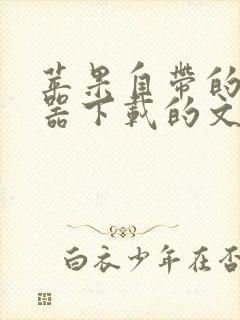 苹果自带的
器下载的文
白衣少年在否